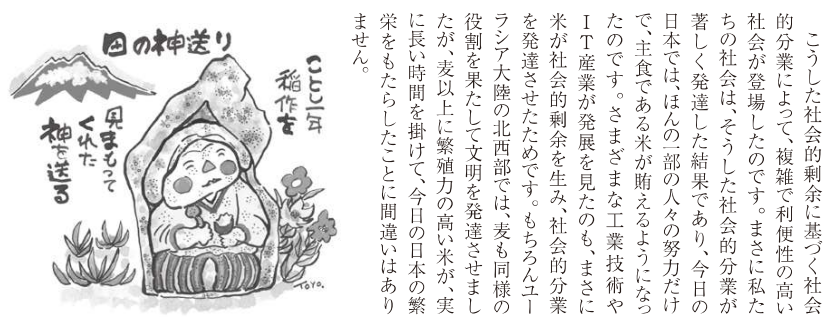 こうした社会的剰余に基づく社会
的分業によって、複雑で利便性の高い
社会が登場したのです。まさに私た
ちの社会は、そうした社会的分業が
著しく発達した結果であり、今日の
日本では、ほんの一部の人々の努力だけ
で、主食である米が賄えるようになっ
たのです。さまざまな工業技術や
IT産業が発展を見たのも、まさに
米が社会的剰余を生み、社会的分業
を発達させたためです。もちろんユー
ラシア大陸の北西部では、麦も同様の
役割を果たして文明を発達させまし
たが、麦以上に繁殖力の高い米が、実
に長い時間を掛けて、今日の日本の繁
栄をもたらしたことに間違いはあり
ません。
田の神送り
ことし一年
稲作を
見まもって
くれた
神を送る
TOYO.